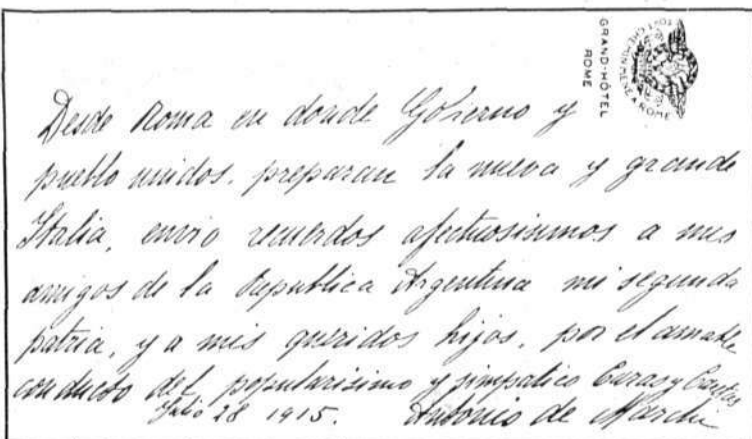 GRAND-HÔTEL
ROME
Desde Roma en donde Gobierno y
pueblo unidos, preparan la nueva y grande
Italia, envio recuerdos afectuosisimos a mis
amigos de la Republica Argentina mi segunda
patria, y a mis queridos hijos, por el amable
conducto del popularisimo y simpatico Caras y Caretas
Julio 28 1915. Antonio de Marchi